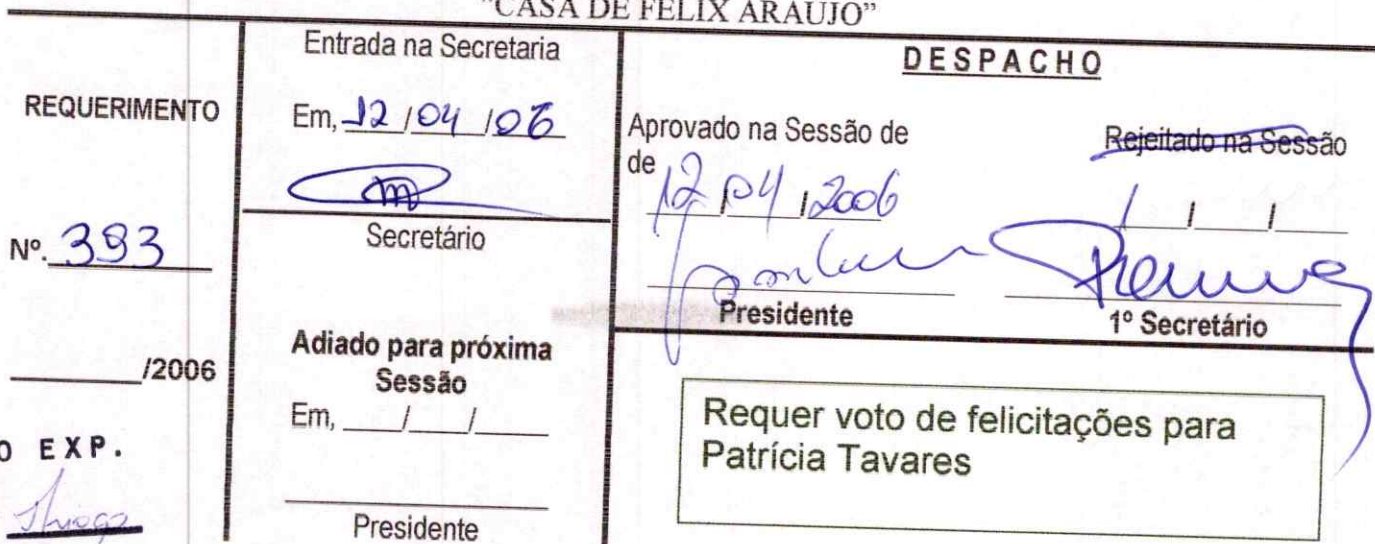 "CASA DE FELIX ARAUJO"
REQUERIMENTO
Nº. 393
/2006
O EXP.
Thiago
Entrada na Secretaria
Em, 12/04/06
Secretário
Adiado para próxima
Sessão
Em, ____/____/____
Presidente
DESPACHO
Aprovado na Sessão de
de
12/04/2006
Presidente
Rejeitado na Sessão
/ / /
1º Secretário
Requer voto de felicitações para
Patrícia Tavares